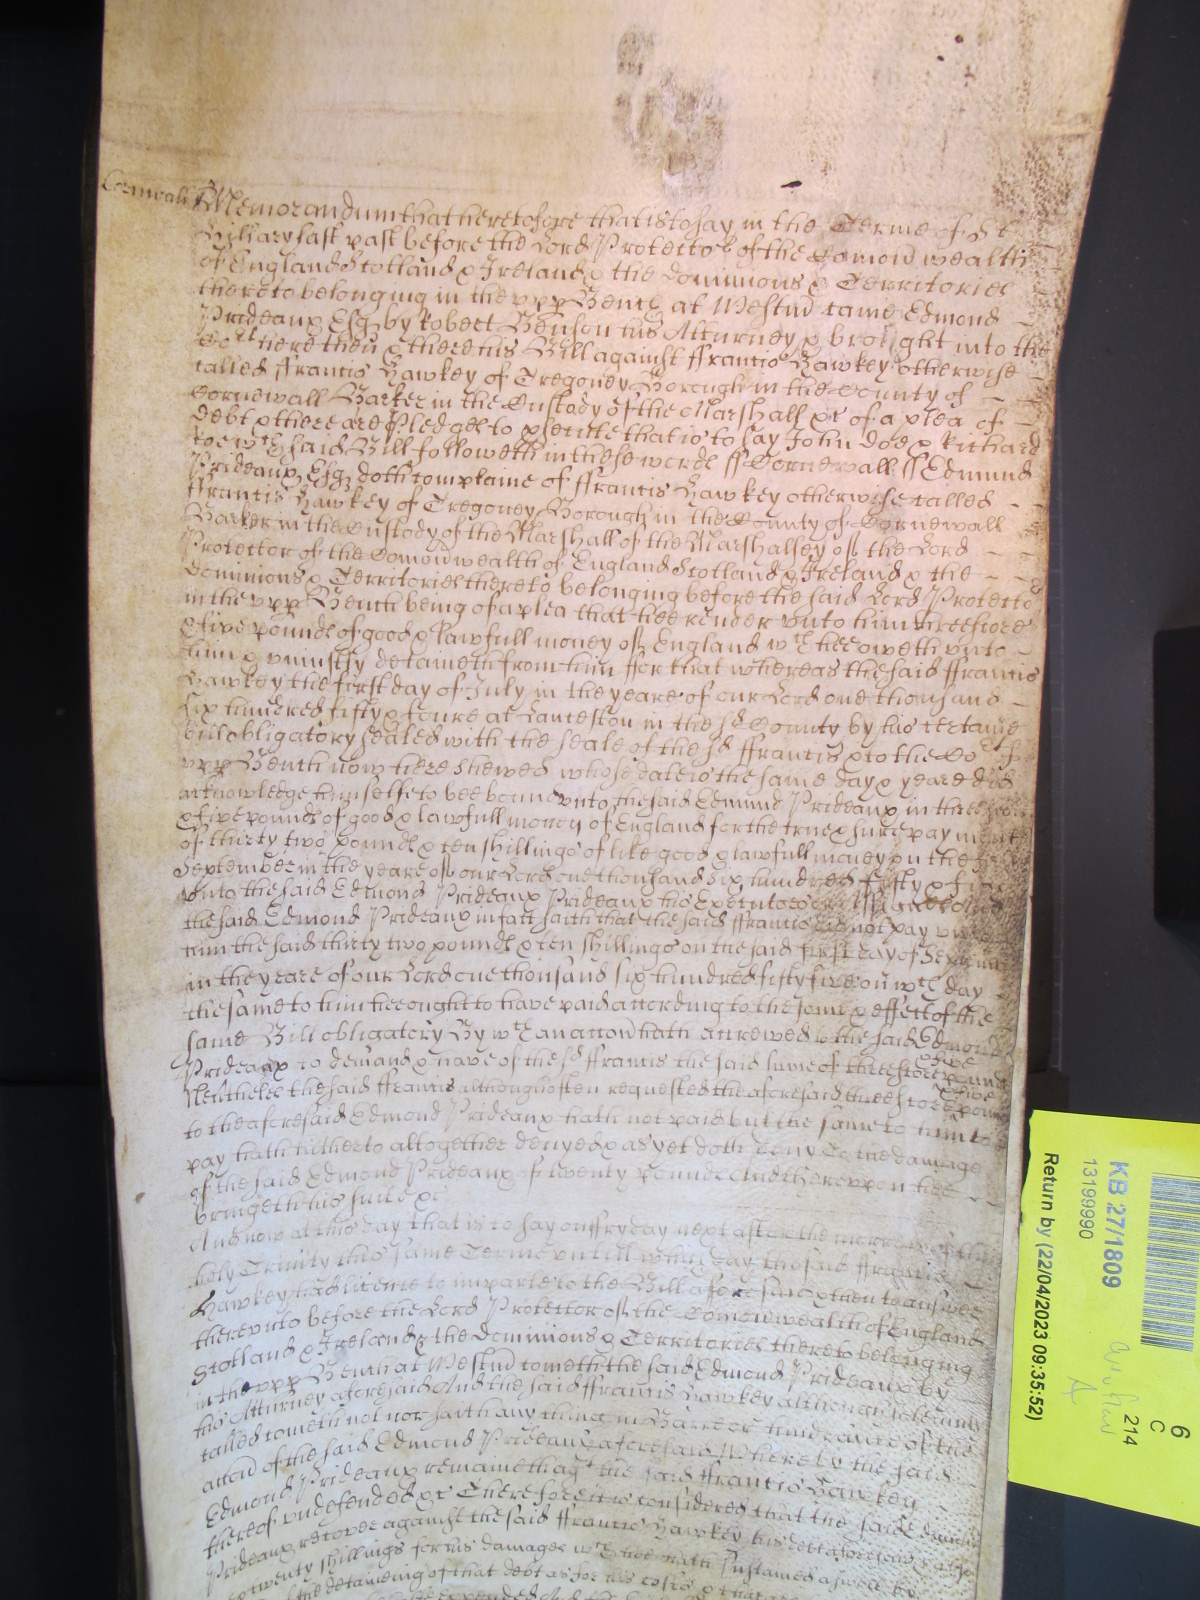 Cornwall ss Memorandum that heretofore that is to say in the Terme of St
Hillary last past before the Lord Protector of the Comonwealth
of England Scotland & Ireland & the dominions & Territories
thereto belonging in the upp Bench at Westmr came Edmond
Prideaux Esqr by Robert Benson his Atturney & brought into the
Cort here then & there his Bill against ffrancis Hawkey otherwise
called ffrancis Hawkey of Tregoney Borough in the County of
Cornewall Barker in the Custody of the Marshall &c of a plea of
debt & there are Pledges to psecute that is to say John doe & Richard
roe wch said Bill followeth in these words ss Cornewall ss Edmund
Prideaux Esqr doth complaine of ffrancis Hawkey otherwise called
ffrancis Hawkey of Tregoney Borough in the County of Cornewall
Barker in the Custody of the Marshall of the Marshalsey of the Lord
Protector of the Comonwealth of England Scotland & Ireland & the
dominions & Territories thereto belonging before the said Lord Protector
in the upp Bench being of a plea that hee render unto him threescore
& five pounds of good & lawfull money of England wch hee oweth unto
him & uniustly detaineth from him ffor that whereas the said ffrancis
Hawkey the first day of July in the yeare of our Lord one thousand
six hundred fifty & foure at Lanceston in the sd County by his certaine
bill obligatory sealed with the seale of the sd ffrancis & to the Cort of the
upp Bench now here shewed whose date is the same day & yeare did
acknowledge himselfe to bee bound unto the said Edmund Prideaux in threescore
& five pounds of good & lawfull money of England for the true & sure payment
of thirty two pounds & ten shillings of like good & lawfull money on the first
September in the yeare of our Lord one thousand six hundred fifty & five
unto the said Edmond Prideaux Prideaux his Executors or Assignes And
the said Edmond Prideaux in fact saith that the said ffrancis did not pay unto
him the said thirty two pounds & ten shillings on the said first day of September
in the yeare of our Lord one thousand six hundred fifty five on wch day
the same to him hee ought to have paid according to the forme & effect of the
same Bill obligatory By wch an accon hath accrewed to the said Edmond
Prideaux to demand & have of the sd ffrancis the said sume of threescore & five pounds
Neutheles the said ffrancis although often requested the aforesaid threescore & five pounds
to the aforesaid Edmond Prideaux hath not paid but the same to him to
pay hath hitherto altogether denyed & as yet doth deny To the damage
of the said Edmond Prideaux of twenty pounds And thereupon hee
bringeth his suite &c
And now at this day that is to say on ffryday next after the morrow of the
holy Trinity this same Terme untill which day the said ffrancis
Hawkey had licence to imparle to the Bill aforesaid & then to answer
thereunto before the Lord Protector of the Comonwealth of England
Scotland & Ireland & the dominions & Territories thereto belonging
in the upp Bench at Westmr cometh the said Edmond Prideaux by
his Atturney aforesaid And the said ffrancis Hawkey although solemnly
called cometh not nor saith any thing in Barr or hindrance of the
accon of the said Edmond Prideaux aforesaid Whereby the said
Edmond Prideaux remaineth agt the said ffrancis Hawkey
thereof undefended &c Therefore it is considered that the said Edmond
Prideaux recover against the said ffrancis Hawkey his debt aforesaid & also
twenty shillings for his damages wch hee hath sustained aswell by
the detaineing of that debt as for his costs &
expended
KB 27/1809
13199990
Return by (22/04/2023 09:35:52)
6
C
214
A